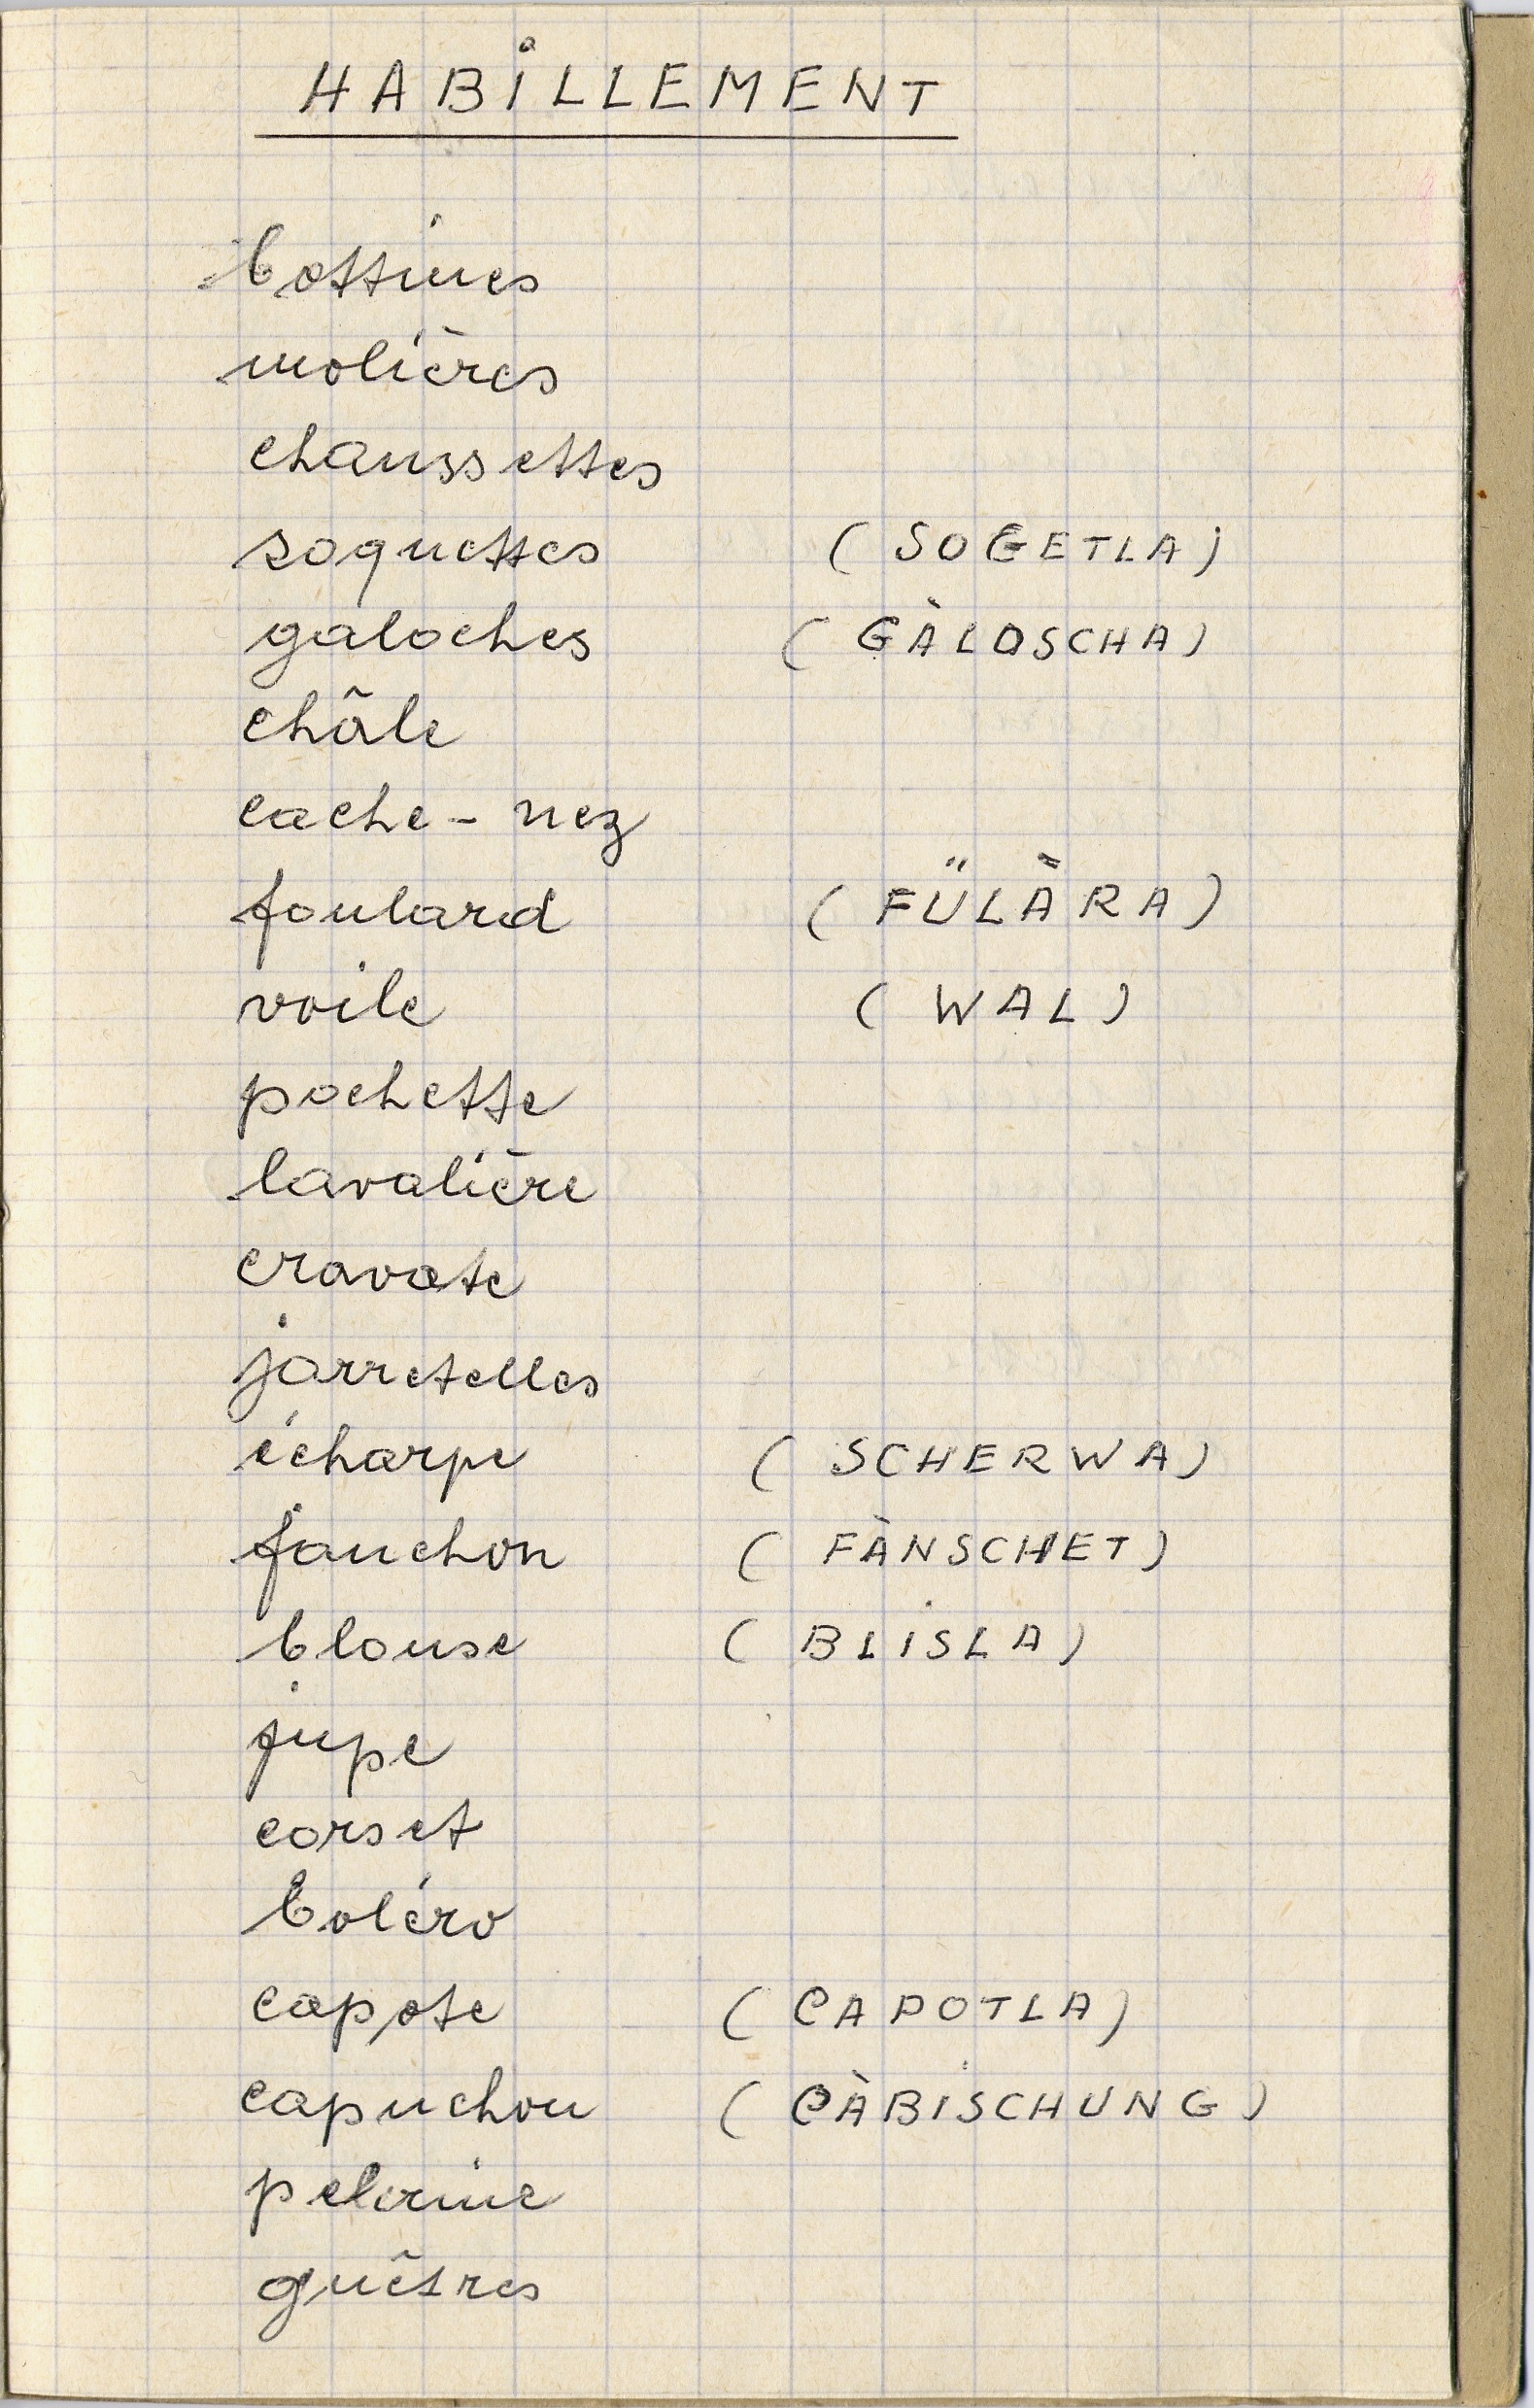 HABiLLEMENT
bottines
molières
chaussettes
soquettes (SOGETLA)
galoches (GÀLOSCHA)
châle
cache-nez
foulard (FÜLÀRA)
voile (WAL)
pochette
lavalière
cravate
jarretelles
écharpe (SCHERWA)
fanchon (FÀNSCHET)
blouse (BLiSLA)
jupe
corset
boléro
capote (CAPOTLA)
capuchon (CÀBiSCHUNG)
pelerine
guêtres